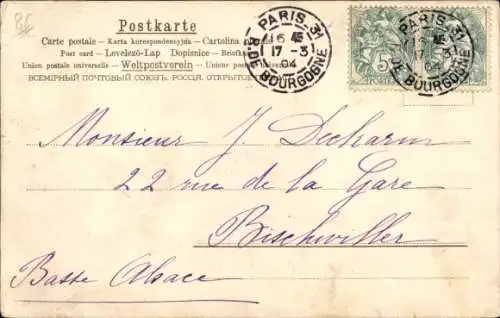 Postkarte
Carte postale - Karta korespondencyjna - Cartolina
Post card - Levelező-Lap Dopisnice - Briefk
Union postale universelle - Weltpostverein - Unione postale univers
ВСЕМІРНЫЙ ПОЧТОВЫЙ СОЮЗЪ. РОССІЯ. ОТКРЫТОЕ
PARIS 31
16
17 - 3
04
R. DE BOURGOGNE
PARIS 31
DE BOURGOGNE
5
Monsieur J. Decharm
22 rue de la Gare
Bischwiller
Basse Alsace